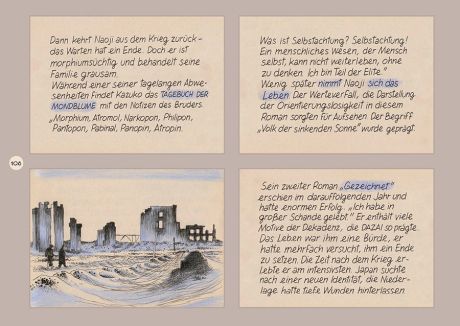 Dann kehrt Naoji aus dem Krieg zurück -
das Warten hat ein Ende. Doch er ist
morphiumsüchtig und behandelt seine
Familie grausam.
Während einer seiner tagelangen Abwe-
senheiten findet Kazuko das TAGEBUCH DER
MONDBLUME mit den Notizen des Bruders.
„Morphium, Atromol, Narkopon, Philipon,
Pantopon, Pabinal, Panopin, Atropin.
Was ist Selbstachtung? Selbstachtung!
Ein menschliches Wesen, der Mensch
selbst, kann nicht weiterleben, ohne
zu denken. Ich bin Teil der Elite."
Wenig später nimmt Naoji sich das
Leben. Der Werteverfall, die Darstellung
der Orientierungslosigkeit in diesem
Roman sorgten für Aufsehen. Der Begriff
„Volk der sinkenden Sonne" wurde geprägt.
106
Sein zweiter Roman „Gezeichnet"
erschien im darauffolgenden Jahr und
hatte enormen Erfolg. „Ich habe in
großer Schande gelebt." Er enthält viele
Motive der Dekadenz, die DAZAI so prägte.
Das Leben war ihm eine Bürde, er
hatte mehrfach versucht, ihm ein Ende
zu setzen. Die Zeit nach dem Krieg er-
lebte er am intensivsten. Japan suchte
nach einer neuen Identität, die Nieder-
lage hatte tiefe Wunden hinterlassen.